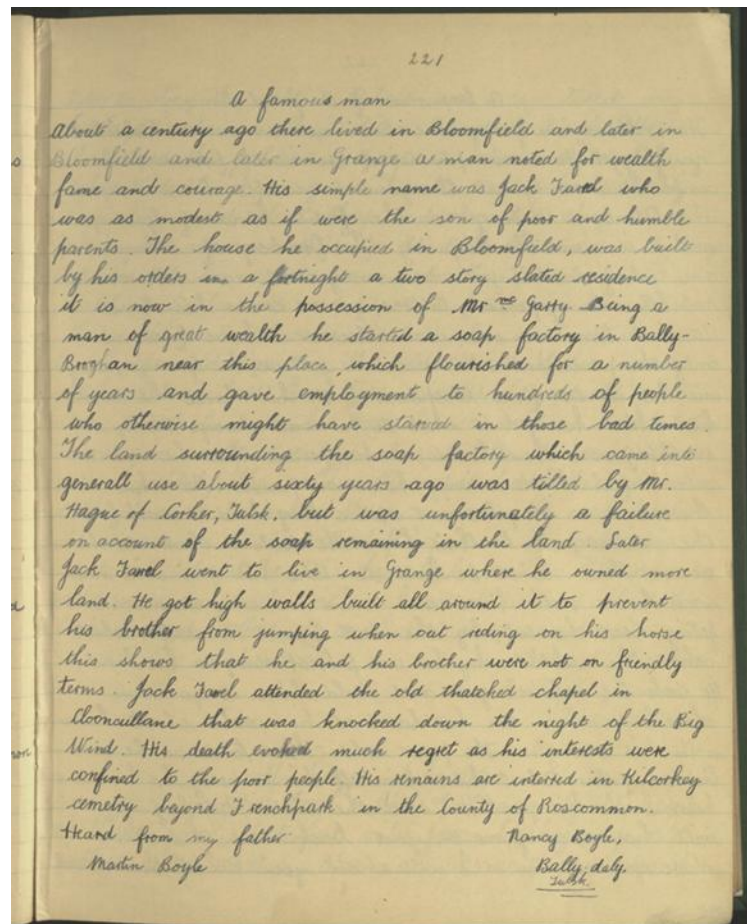 221
A famous man
About a century ago there lived in Bloomfield and later in
Bloomfield and later in Grange a man noted for wealth
fame and courage. His simple name was Jack Farel who
was as modest as if were the son of poor and humble
parents. The house he occupied in Bloomfield, was built
by his orders in a fortnight a two story slated residence
it is now in the possession of Mr Mc Garry. Being a
man of great wealth he started a soap factory in Bally-
Broghan near this place, which flourished for a number
of years and gave employment to hundreds of people
who otherwise might have starved in those bad times.
The land surrounding the soap factory which came into
generall use about sixty years ago was tilled by Mr.
Hague of Corker, Tulsk, but was unfortunately a failure
on account of the soap remaining in the land. Later
Jack Farel went to live in Grange where he owned more
land. He got high walls built all around it to prevent
his brother from jumping when out riding on his horse
this shows that he and his brother were not on friendly
terms. Jack Farel attended the old thatched chapel in
Clooncullane that was knocked down the night of the Big
Wind. His death evoked much regret as his interests were
confined to the poor people. His remains are interred in Kilcorkey
cemetry beyond Frenchpark in the County of Roscommon.
Heard from my father Nancy Boyle,
Martin Boyle Bally, daly.
Tulsk.